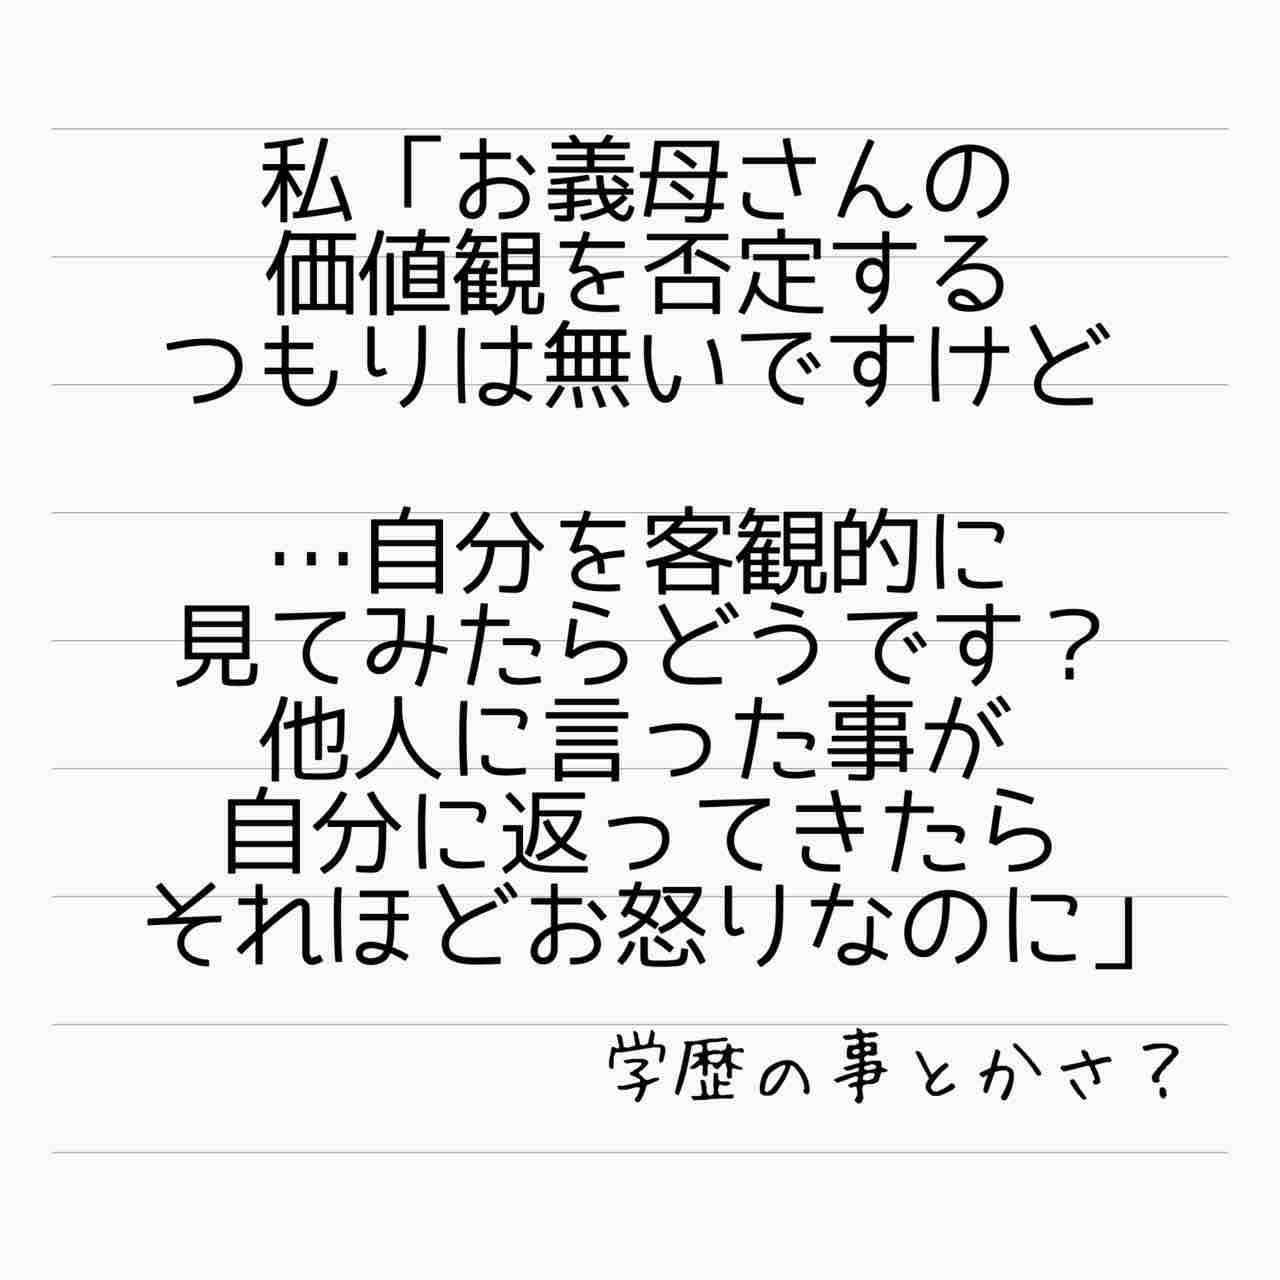 私「お義母さんの
価値観を否定する
つもりは無いですけど
…自分を客観的に
見てみたらどうです？
他人に言った事が
自分に返ってきたら
それほどお怒りなのに」
学歴の事とかさ？